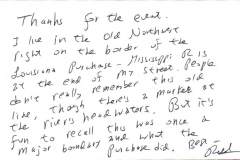 Thanks for the event.
I live in the Old Northwest
right on the border of the
Louisiana Purchase - Mississippi R is
at the end of my street. People
don't really remember this old
line, though there's a marker at
the river's headwaters. But it's
fun to recall this was once a
major boundary and what the
Purchase did. Best -